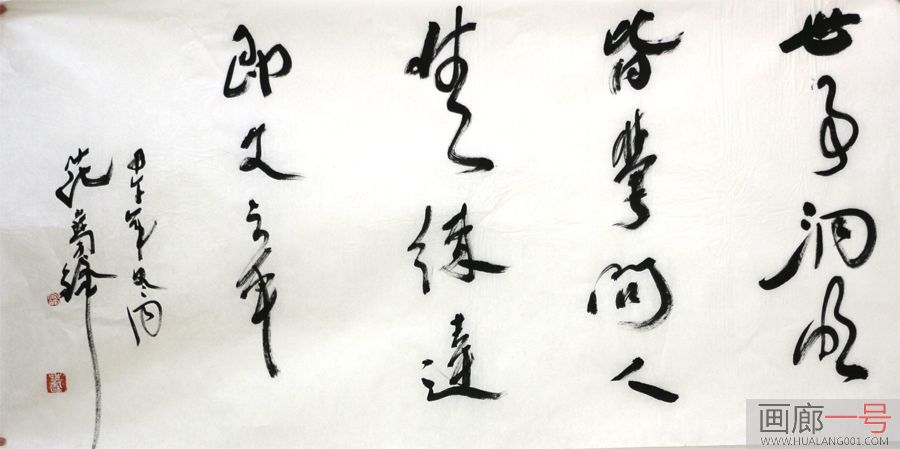 世事洞明
皆學問人
情練達
即文章
甲午年冬
范
画廊一号
WWW.HUALANG001.COM